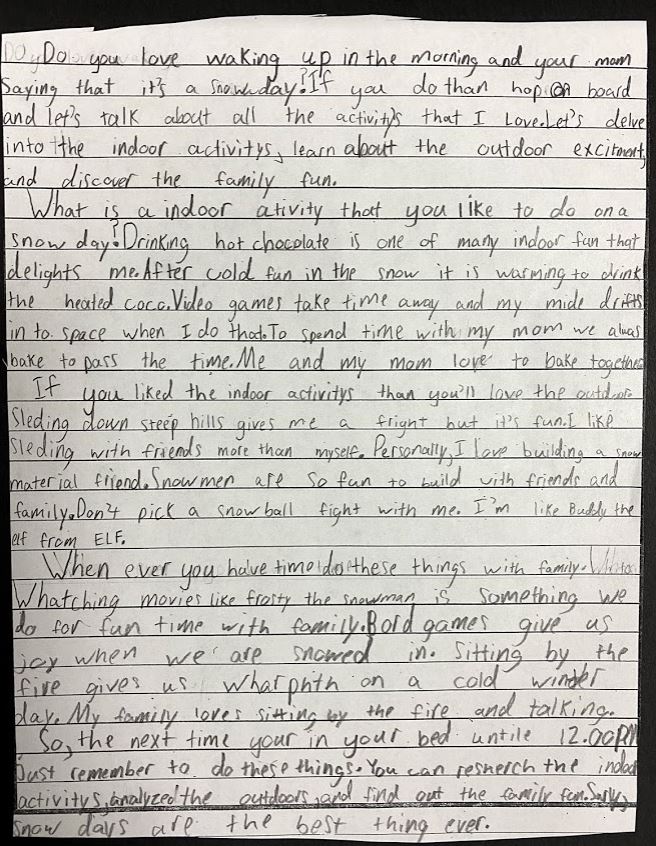 Do you love waking up in the morning and your mom
Saying that it's a snowday? If you do than hop on board
and let's talk about all the activity's that I Love. Let's delve
into the indoor activitys, learn about the outdoor excitment,
and discover the family fun.
What is a indoor ativity that you like to do on a
snow day? Drinking hot chocolate is one of many indoor fun that
delights me. After cold fun in the snow it is warming to drink
the heated coco. Video games take time away and my mide drifts
in to space when I do that. To spend time with my mom we alwas
bake to pass the time. Me and my mom love to bake together
If you liked the indoor activitys than you'll love the outdoor
Sleding down steep hills gives me a fright but it's fun. I like
Sleding with friends more than myself. Personally, I love building a snow
material friend. Snowmen are so fun to build with friends and
family. Don't pick a snowball fight with me. I'm like Buddy the
elf from ELF.
When ever you have time do these things with family.
Whatching movies like frosty the snowman is something we
do for fun time with family. Bord games give us
joy when we are snowed in. Sitting by the
fire gives us wharphth on a cold winder
day. My family loves sitting by the fire and talking.
So, the next time your in your bed untile 12.00PM
Just remember to do these things. You can reserch the indoor
activitys, analyzed the outdoors, and find out the family fun.
snow days are the best thing ever.